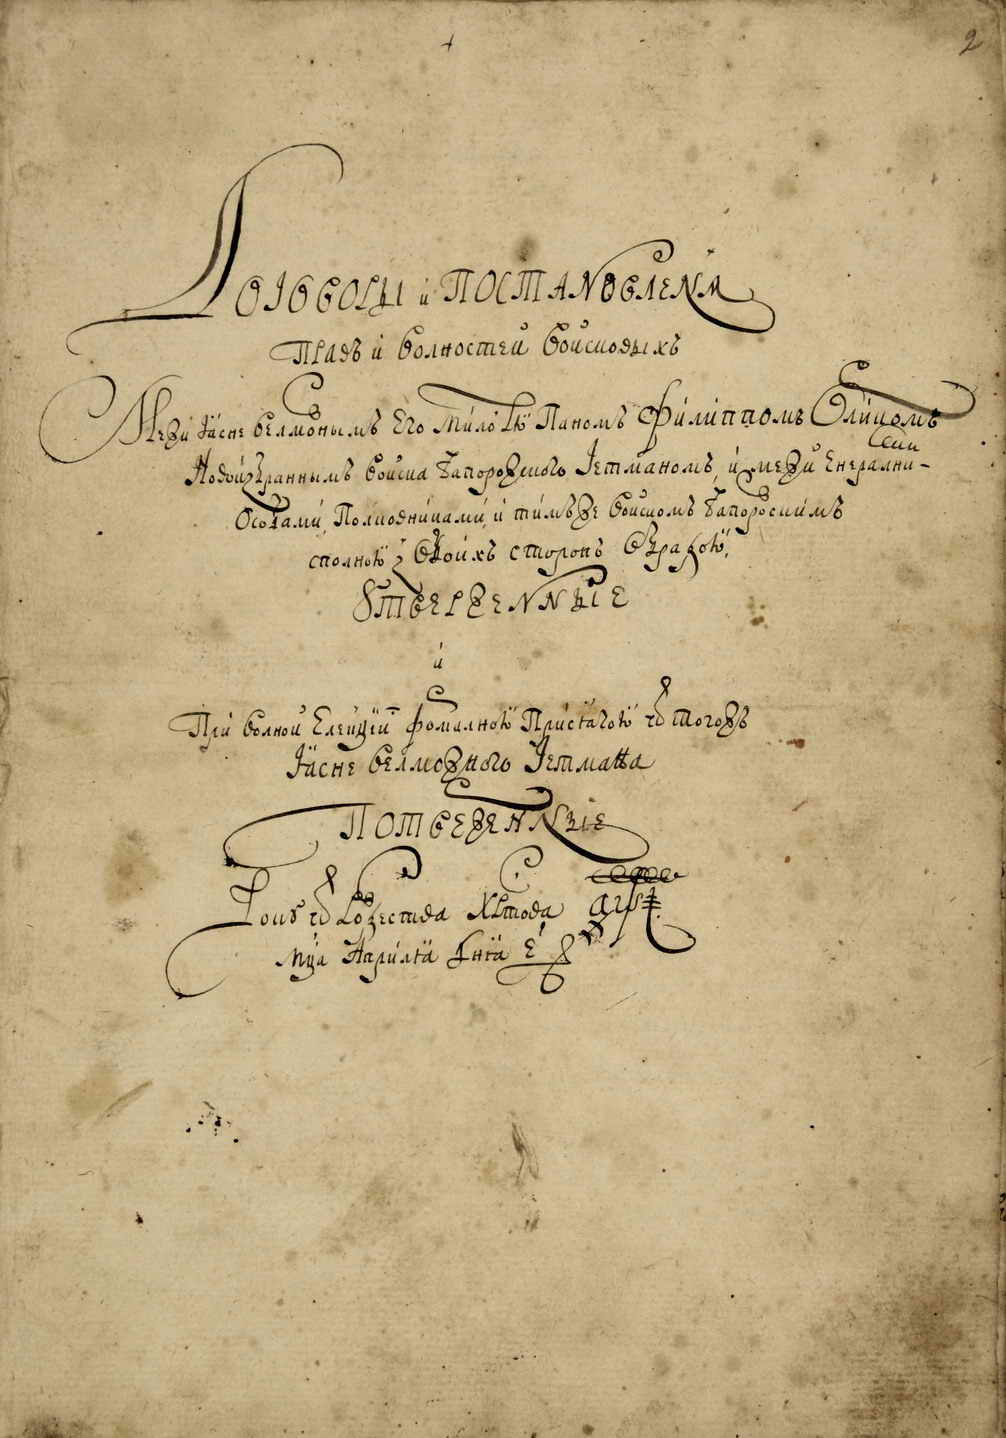 2
Договоры и постановленѧ
правъ и волностей войсковыхъ
Межи ꙗсне велможнымъ Его милостю паномъ Филиппомъ Орликомъ
новоизбраннымъ войска Запорожского гетманомъ, и межи енералними
особами, полковниками, и тимъже войскомъ Запорозскимъ
сполною з обоихъ сторонъ обрадою,
Ꙋтверженныие
и
При волной елекціи формалною присѧгою ѿ тогожъ
ꙗсне велможного гетмана
потверженныие
Рокꙋ ѿ Рожества Христова ҂аѱі
мца Априлѧ днѧ е